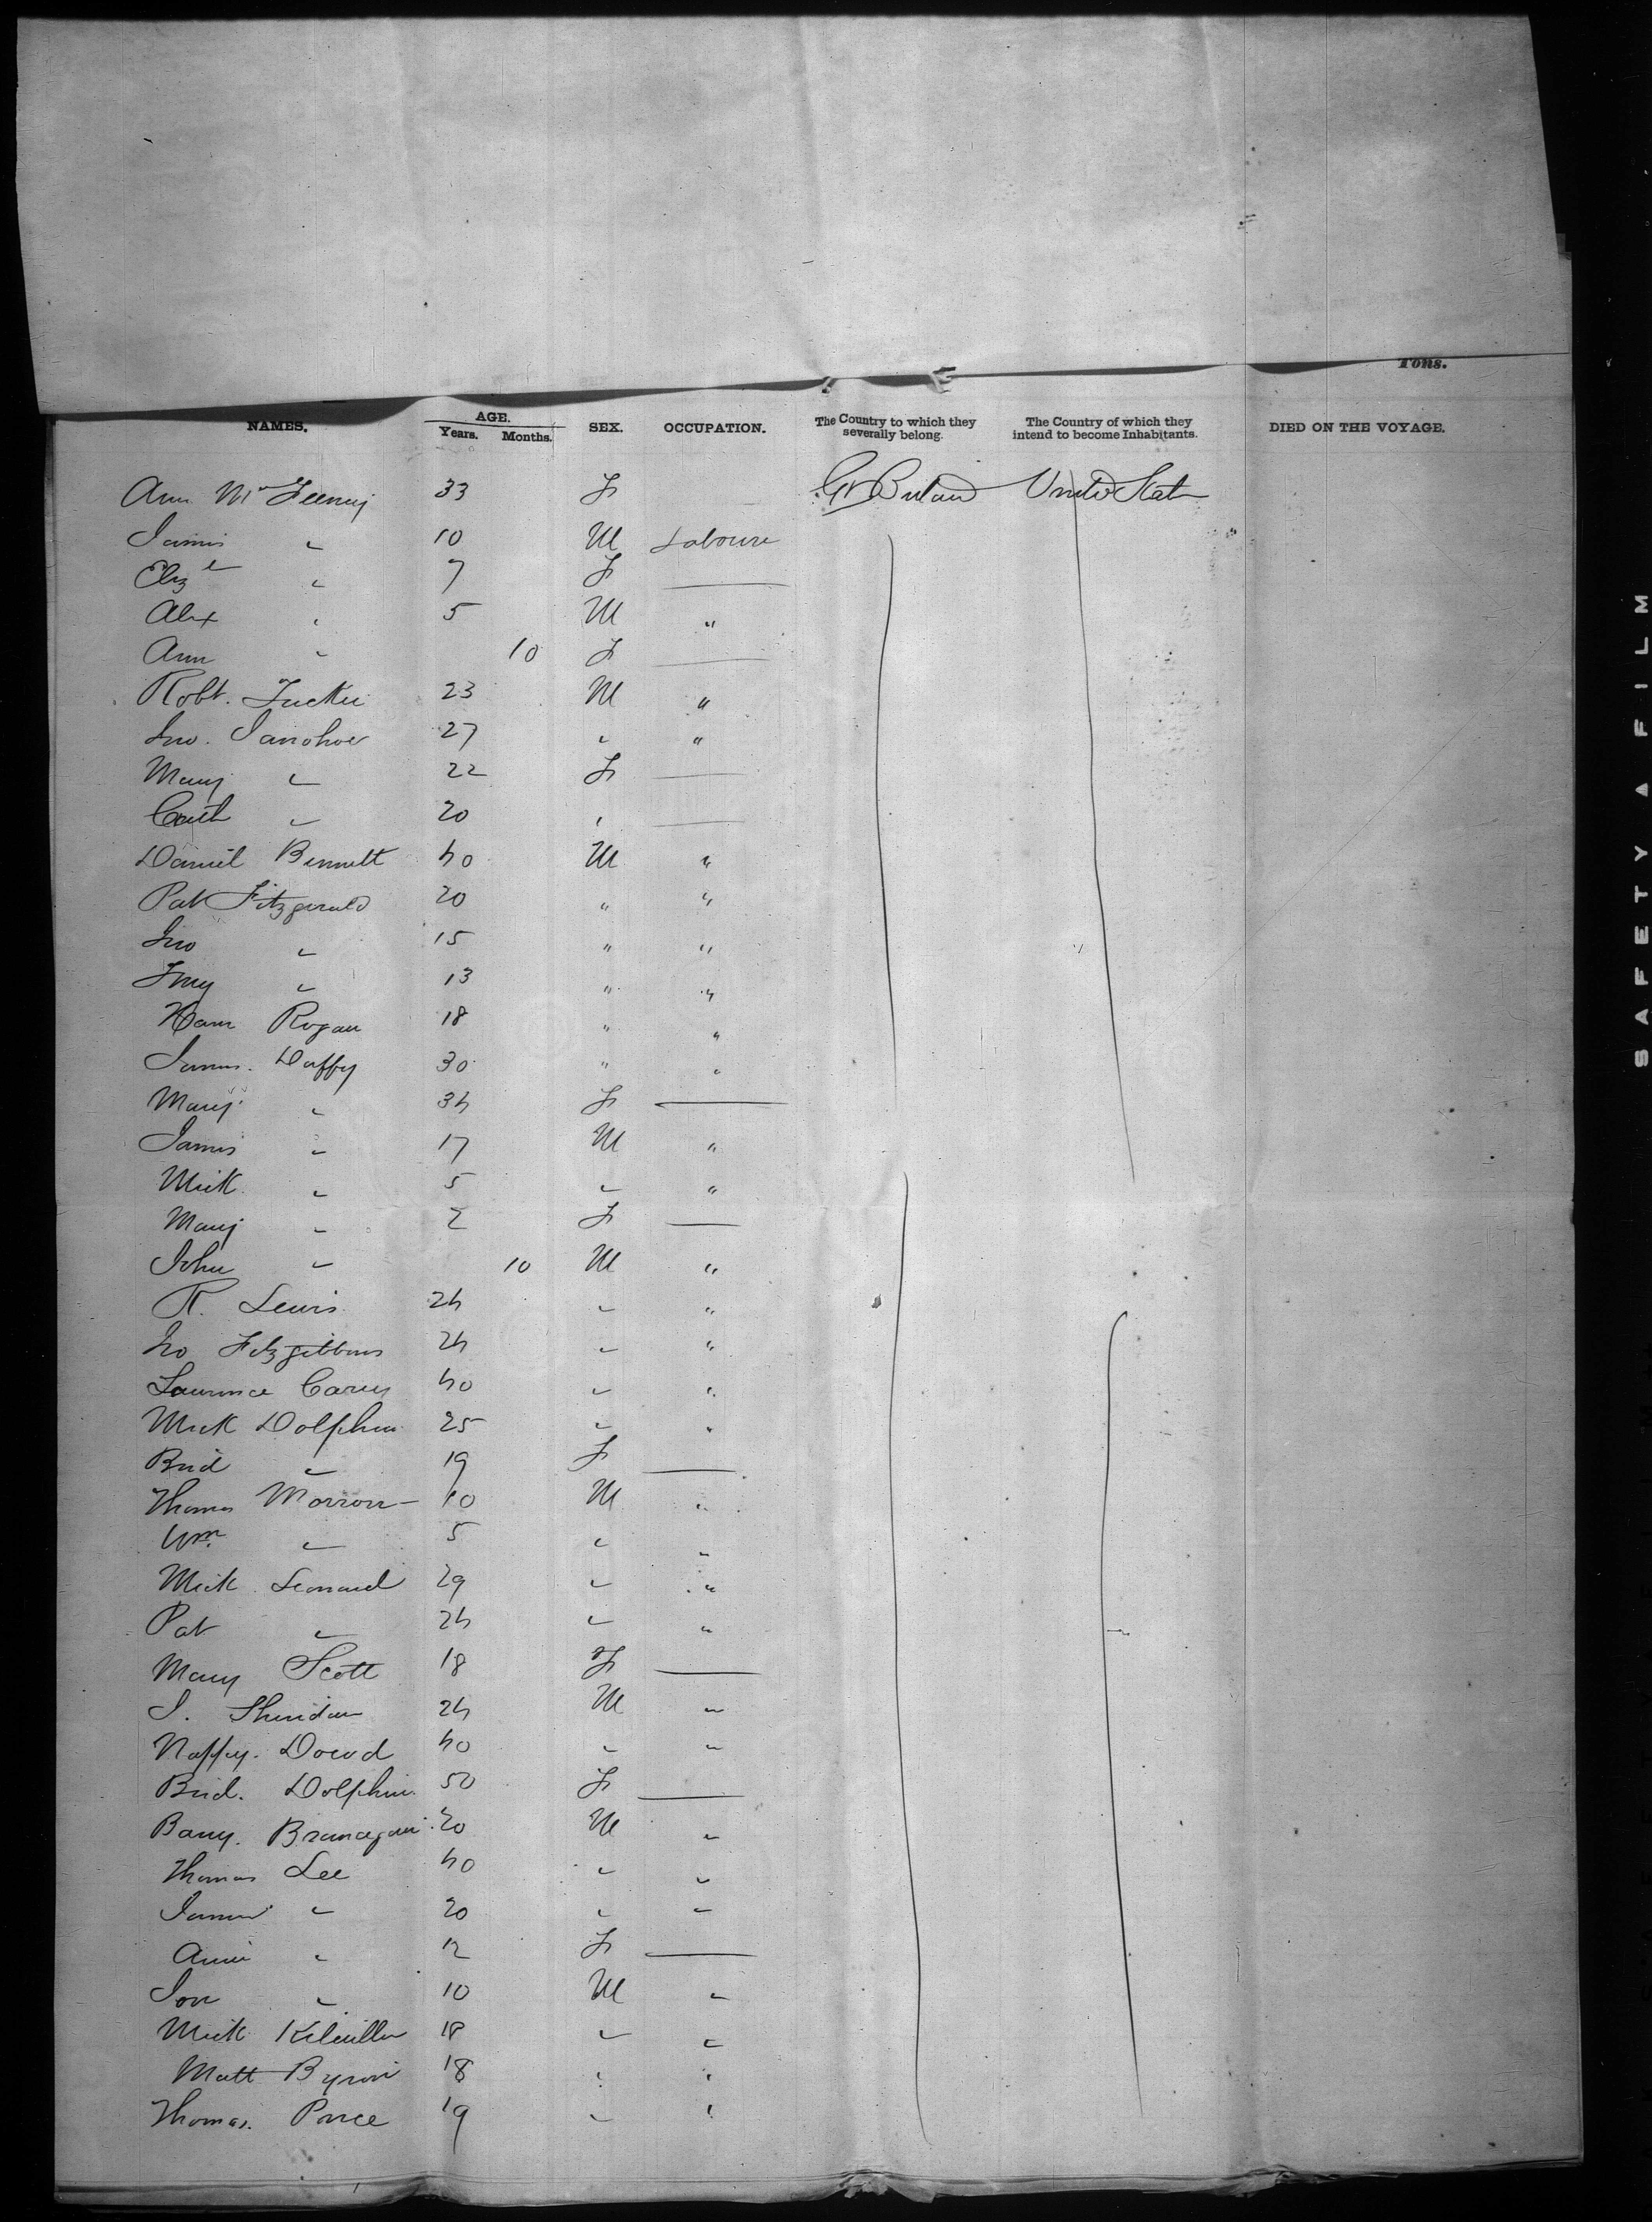 Tons.
NAMES. AGE. Years. Months. SEX. OCCUPATION. The Country to which they severally belong. The Country of which they intend to become Inhabitants. DIED ON THE VOYAGE.
Ann McFeeney 33 F Gt Britain United States
James " 10 M Laboure
Eliz " 7 F —
Alex " 5 M "
Ann " 10 F —
Robt. Tucker 23 M "
Jno. Janohoe 27 " "
Mary " 22 F —
Cath " 20 " —
Daniel Bennett 40 M "
Pat Fitzgerald 20 " "
Jno " 15 " "
" 13 " "
Rogan 18 " "
James. Duffy 30 " "
Mary " 34 F —
James " 17 M "
Mick " 5 " "
Mary " 2 F —
John " 10 M "
R. Lewis 24 " "
Jno Fitzgibbons 24 " "
Laurence Carey 40 " "
Mick Dolphin 25 " "
Brid " 19 F —
Thomas Morrow 10 M "
Wm. " 5 " "
Mick Leonard 29 " "
Pat " 24 " "
Mary Scott 18 F —
J. Sheridan 24 M "
Dowd 40 " "
Brid. Dolphin 50 F —
Barry. Branagan 20 M "
Thomas Lee 40 " "
James " 20 " "
Annie " 12 F —
" 10 M "
Mick 18 " "
Matt Byron 18 " "
Thomas. Price 19 " "
SAFETY A FILM